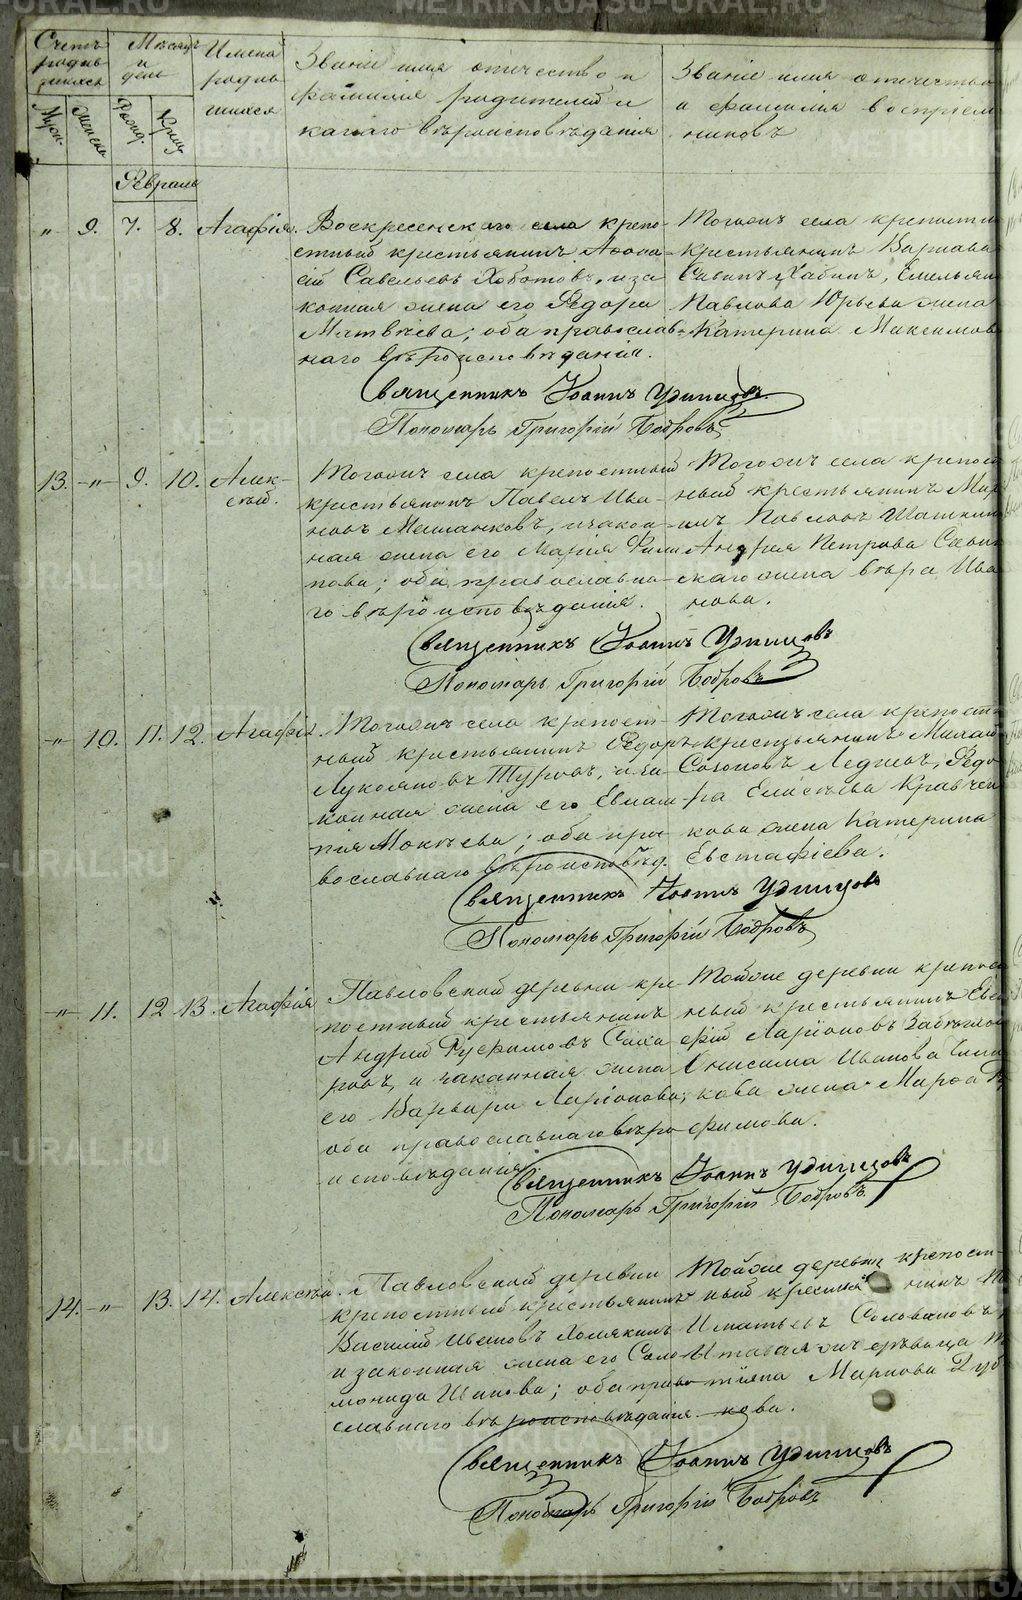 Счетъ родившихся
Мѣсяцъ и день
Имена родившихся
Званіе имя отчество и
фамилія родителей и
какаго вѣроисповѣданія
Званіе имя отчество
и фамилія воспріем
никовъ
Муж.
Женска
Рожд.
Крещ
Февраль
„ 9. 7. 8. Агафія.
Воскресенскаго села крѣпо-
стный крестьянинъ Афона-
сій Савельевъ Хоботовъ, и за
конная жена его Федора
Матвѣева; оба православ-
наго вѣроисповѣданія.
Тогожъ села крѣпостн
крестьянинъ Варнава
Савинъ Хабинъ, Емельян
Павлова Юрьева жена
Катерина Максимов
Священникъ Іоаннъ Удинцовъ
Пономарь Григорій Бобровъ
13. „ 9. 10. Алек-
сѣй.
Тогожъ села крѣпостный
крестьянинъ Павелъ Ива-
новъ Мешанковъ, и закон-
ная жена его Марія Фили
пова; оба православна-
го вѣроисповѣданія.
Тогожъ села крѣпост
ный крестьянинъ Мар
Павловъ
Андрея Петрова Савин
скаго жена Вѣра Ива
нова.
Священникъ Іоаннъ Удинцовъ
Пономарь Григорій Бобровъ
„ 10. 11. 12. Агафія.
Тогожъ села крѣпост-
ный крестьянинъ Федоръ
Лукояновъ Туровъ, и за
конная жена его Евлам-
пія Мокѣева; оба пра-
вославнаго вѣроисповѣд.
Тогожъ села крѣпостн
крестьянинъ Михай
Созоновъ Ледневъ, Федо
ра Елисѣева Кравчен
кова жена Катерина
Евстафіева.
Священникъ Іоаннъ Удинцовъ
Пономарь Григорій Бобровъ
„ 11. 12 13. Агафія
Павловской деревни крѣ
постный крестьянинъ
Андрей Руфимовъ Саха
ровъ, и законная жена
его Варвара Ларіонова,
оба православнаго вѣро-
исповѣданія.
Тойже деревни крѣпос
ный крестьянинъ Евс
фій Ларіоновъ
Онисима Иванова
кова жена Марфа
фимова.
Священникъ Іоаннъ Удинцовъ
Пономарь Григорій Бобровъ
14. „ 13. 14. Алексѣй.
Павловской деревни
крѣпостный крестьянинъ
Василій Ивановъ Хомякинъ
и законная жена его Соло
монида Иванова; оба право
славнаго вѣроисповѣданія
Тойже деревни крѣпост-
ный крестья нинъ
Игнатьевъ Соловановъ
дѣвица
Маркова Дуб
кова.
Священникъ Іоаннъ Удинцовъ
Пономарь Григорій Бобровъ
METRIKI.GASO-URAL.RU